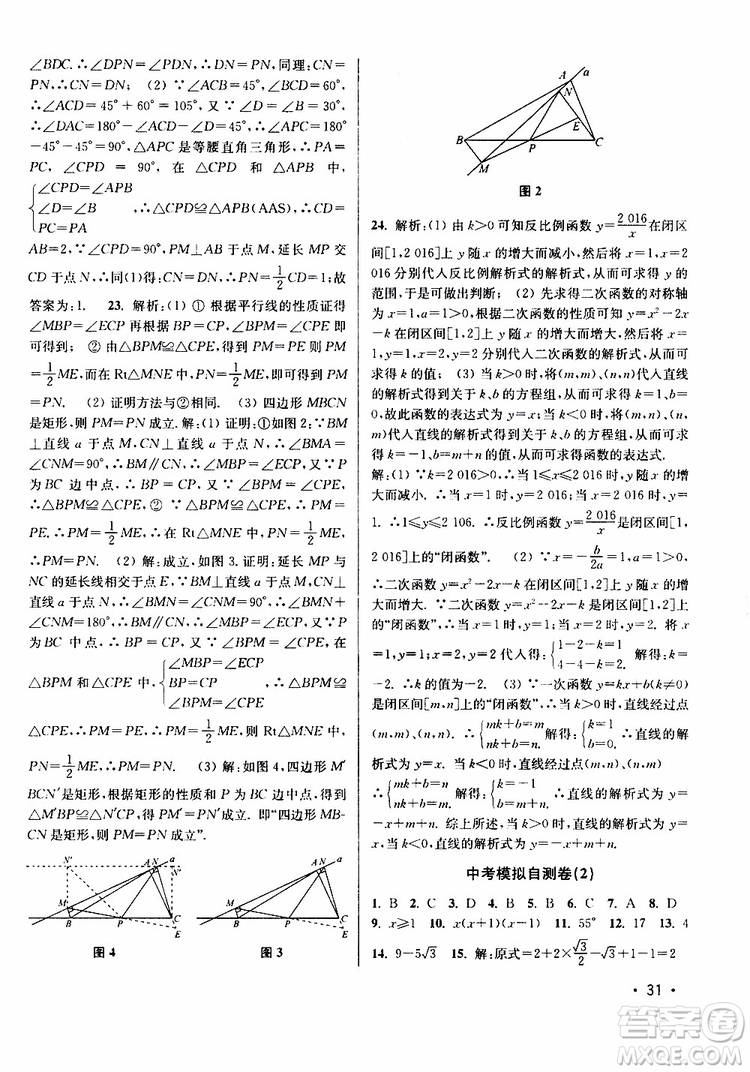 ∠BDC.∴∠DPN=∠PDN,∴DN=PN,同理:CN=
PN,∴CN=DN; (2) ∵∠ACB=45°,∠BCD=60°,
∴∠ACD=45°+60°=105°,又∵∠D=∠B=30°,
∴∠DAC=180°-∠ACD-∠D=45°,∴∠APC=180°
-45°-45°=90°,△APC是等腰直角三角形,∴PA=
PC,∠CPD=90°,在△CPD和△APB中,
{∠CPD=∠APB
∠D=∠B
PC=PA
∴△CPD≌△APB(AAS),∴CD=
AB=2,∵∠CPD=90°,PM⊥AB于点M,延长MP交
CD于点N,∴CN=DN,∴PN=1/2CD=1/2AB=1;故
答案为:1. 23. 解析:(1) ① 根据平行线的性质证得
∠MBP=∠ECP再根据BP=CP,∠BPM=∠CPE即
可得到; ② 由△MBP≌△ECP,得到PM=PE,则PM
=1/2ME,而在Rt△MNE中,PN=1/2ME,即可得到PM
=PN. (2) 证明方法与②相同. (3) 四边形MBCN
是矩形,则PM=PN成立. 解:(1) ①如图2:∵BM
⊥直线a于点M,CN⊥直线a于点N,∴∠BMA=
∠CNM=90°,∴BM∥CN,∴∠MBP=∠ECP,又∵P
为BC边中点,∴BP=CP,又∵∠BPM=∠CPE,
∴△BPM≌△CPE, ② ∵△BPM≌△CPE,∴PM=
PE,∴PM=1/2ME,∴在Rt△MNE中,PN=1/2ME,
∴PM=PN. (2) 解:成立,如图3.证明:延长MP与
NC的延长线相交于点E,∵BM⊥直线a于点M,CN
⊥直线a于点N,∴∠BMN=∠CNM=90°,∴∠BMN+
∠CNM=180°,∴BM∥CN,∴∠MBP=∠ECP,又∵P
为BC中点,∴BP=CP,又∵∠BPM=∠CPE,在
△BPM和△CPE中,{∠MBP=∠ECP
BP=CP
∠BPM=∠CPE
,∴△BPM≌
△CPE,∴PM=PE,∴PM=1/2ME,则Rt△MNE中,
PN=1/2ME,∴PM=PN. (3) 解:如图4,四边形M′
BCN′是矩形,根据矩形的性质和P为BC边中点,得到
△M′BP≌△N′CP,得PM′=PN′成立.即“四边形MB-
CN是矩形,则PM=PN成立”.
N′ A N a N′
M B P C E
图4
A N a
M B P C E
图3
A a
N
E
B P C
M
图2
24. 解析:(1) 由k>0可知反比例函数y=2 016/x在闭区
间[1,2 016]上y随x的增大而减小,然后将x=1,x=
2 016分别代入反比例函数解析式的解析式,从而可求得y的
范围,于是可做出判断; (2) 先求得二次函数的对称轴
为x=1,a=1>0,根据二次函数的性质可知y=x²-2x
-k在闭区间[1,2]上y随x的增大而增大,然后将x=
1,y=1,x=2,y=2分别代入二次函数的解析式,从而可求得
k的值; (3) 当k>0时,将(m,m)、(n,n)代入直线
的解析式得到关于k、b的方程组,从而可求得k=1、b=
0,故此函数的表达式为y=x;当k<0时,将(m,n)、(n,
m)代入直线的解析式得到关于k、b的方程组,从而可求
得k=-1,b=m+n的值,从而求得函数的表达式.
解:(1) ∵k=2 016,∴当1≤x≤2 016时,y随x的增大
而减小.∴当x=1时,y=2 016,当x=2 016时,y=
1.∴1≤y≤2 106.∴反比例函数y=2 016/x是闭区间[1,
2 016]上的“闭函数”. (2) ∵x=-b/2a=1,a=1>0,
∴二次函数y=x²-2x-k在闭区间[1,2]上y随x的
增大而增大.∵二次函数y=x²-2x-k是闭区间[1,2]
上的“闭函数”,∴当x=1时,y=1,当x=2时,y=2.将x
=1,y=1,x=2,y=2代入得:{1-2-k=1
4-4-k=2
解得:k=
-2.∴k的值为-2. (3) ∵一次函数y=kx+b(k≠0)
是闭区间[m,n]上的“闭函数”,∴当k>0时,直线经过点
(m,m)、(n,n).∴{mk+b=m
nk+b=n
解得:{k=1
b=0
.∴直线的解
析式为y=x.当k<0时,直线经过点(m,n)、(n,m)
∴{mk+b=n
nk+b=m
解得:{k=-1
b=m+n
.∴直线的解析式为y=-x
+m+n. 综上所述,当k>0时,直线的解析式为y=x,
当k<0时,直线的解析式为y=-x+m+n.
中考模拟自测卷(2)
1. B 2. C 3. D 4. D 5. B 6. C 7. A 8. D
9. x≥1 10. x(x+1)(x-1) 11. 55° 12. 17 13. 4
14. 9-5√3 15. 解:原式=2+2×√3/2-√3+1-1=2
· 31 ·
答案圈
MXQE.COM